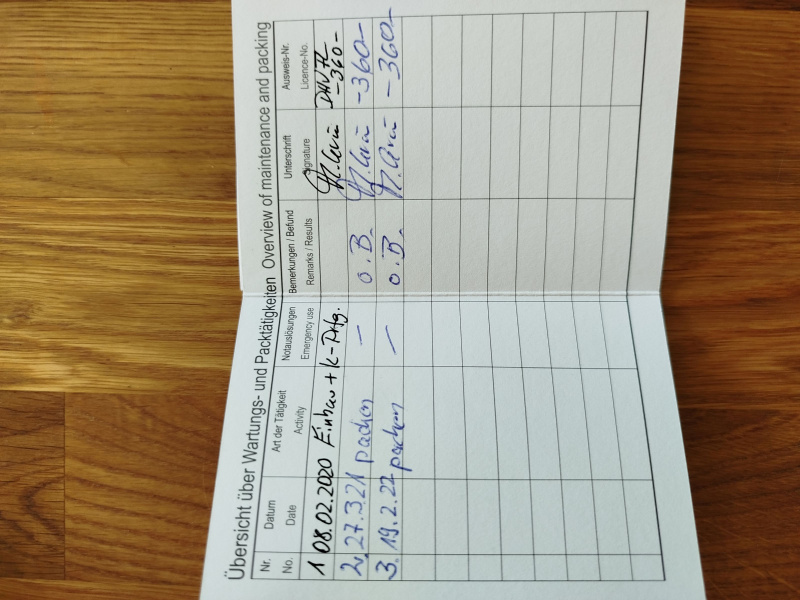 Übersicht über Wartungs- und Packtätigkeiten Overview of maintenance and packing
Nr. Datum Art der Tätigkeit Notauslösungen Bemerkungen / Befund Unterschrift Ausweis-Nr.
No. Date Activity Emergency use Remarks / Results Signature Licence-No.
1 08.02.2020 Einbau + K-Prfg. -360-
2. 27.3.21 packen – o.B. -360-
3. 19.2.22 packen – o.B. -360-